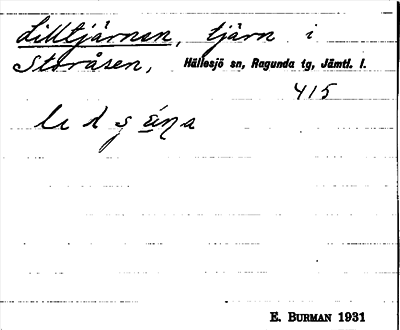 Lilltjärnen, tjärn i
Storåsen, Hällesjö sn, Ragunda tg, Jämtl. l.
415
E. BURMAN 1931